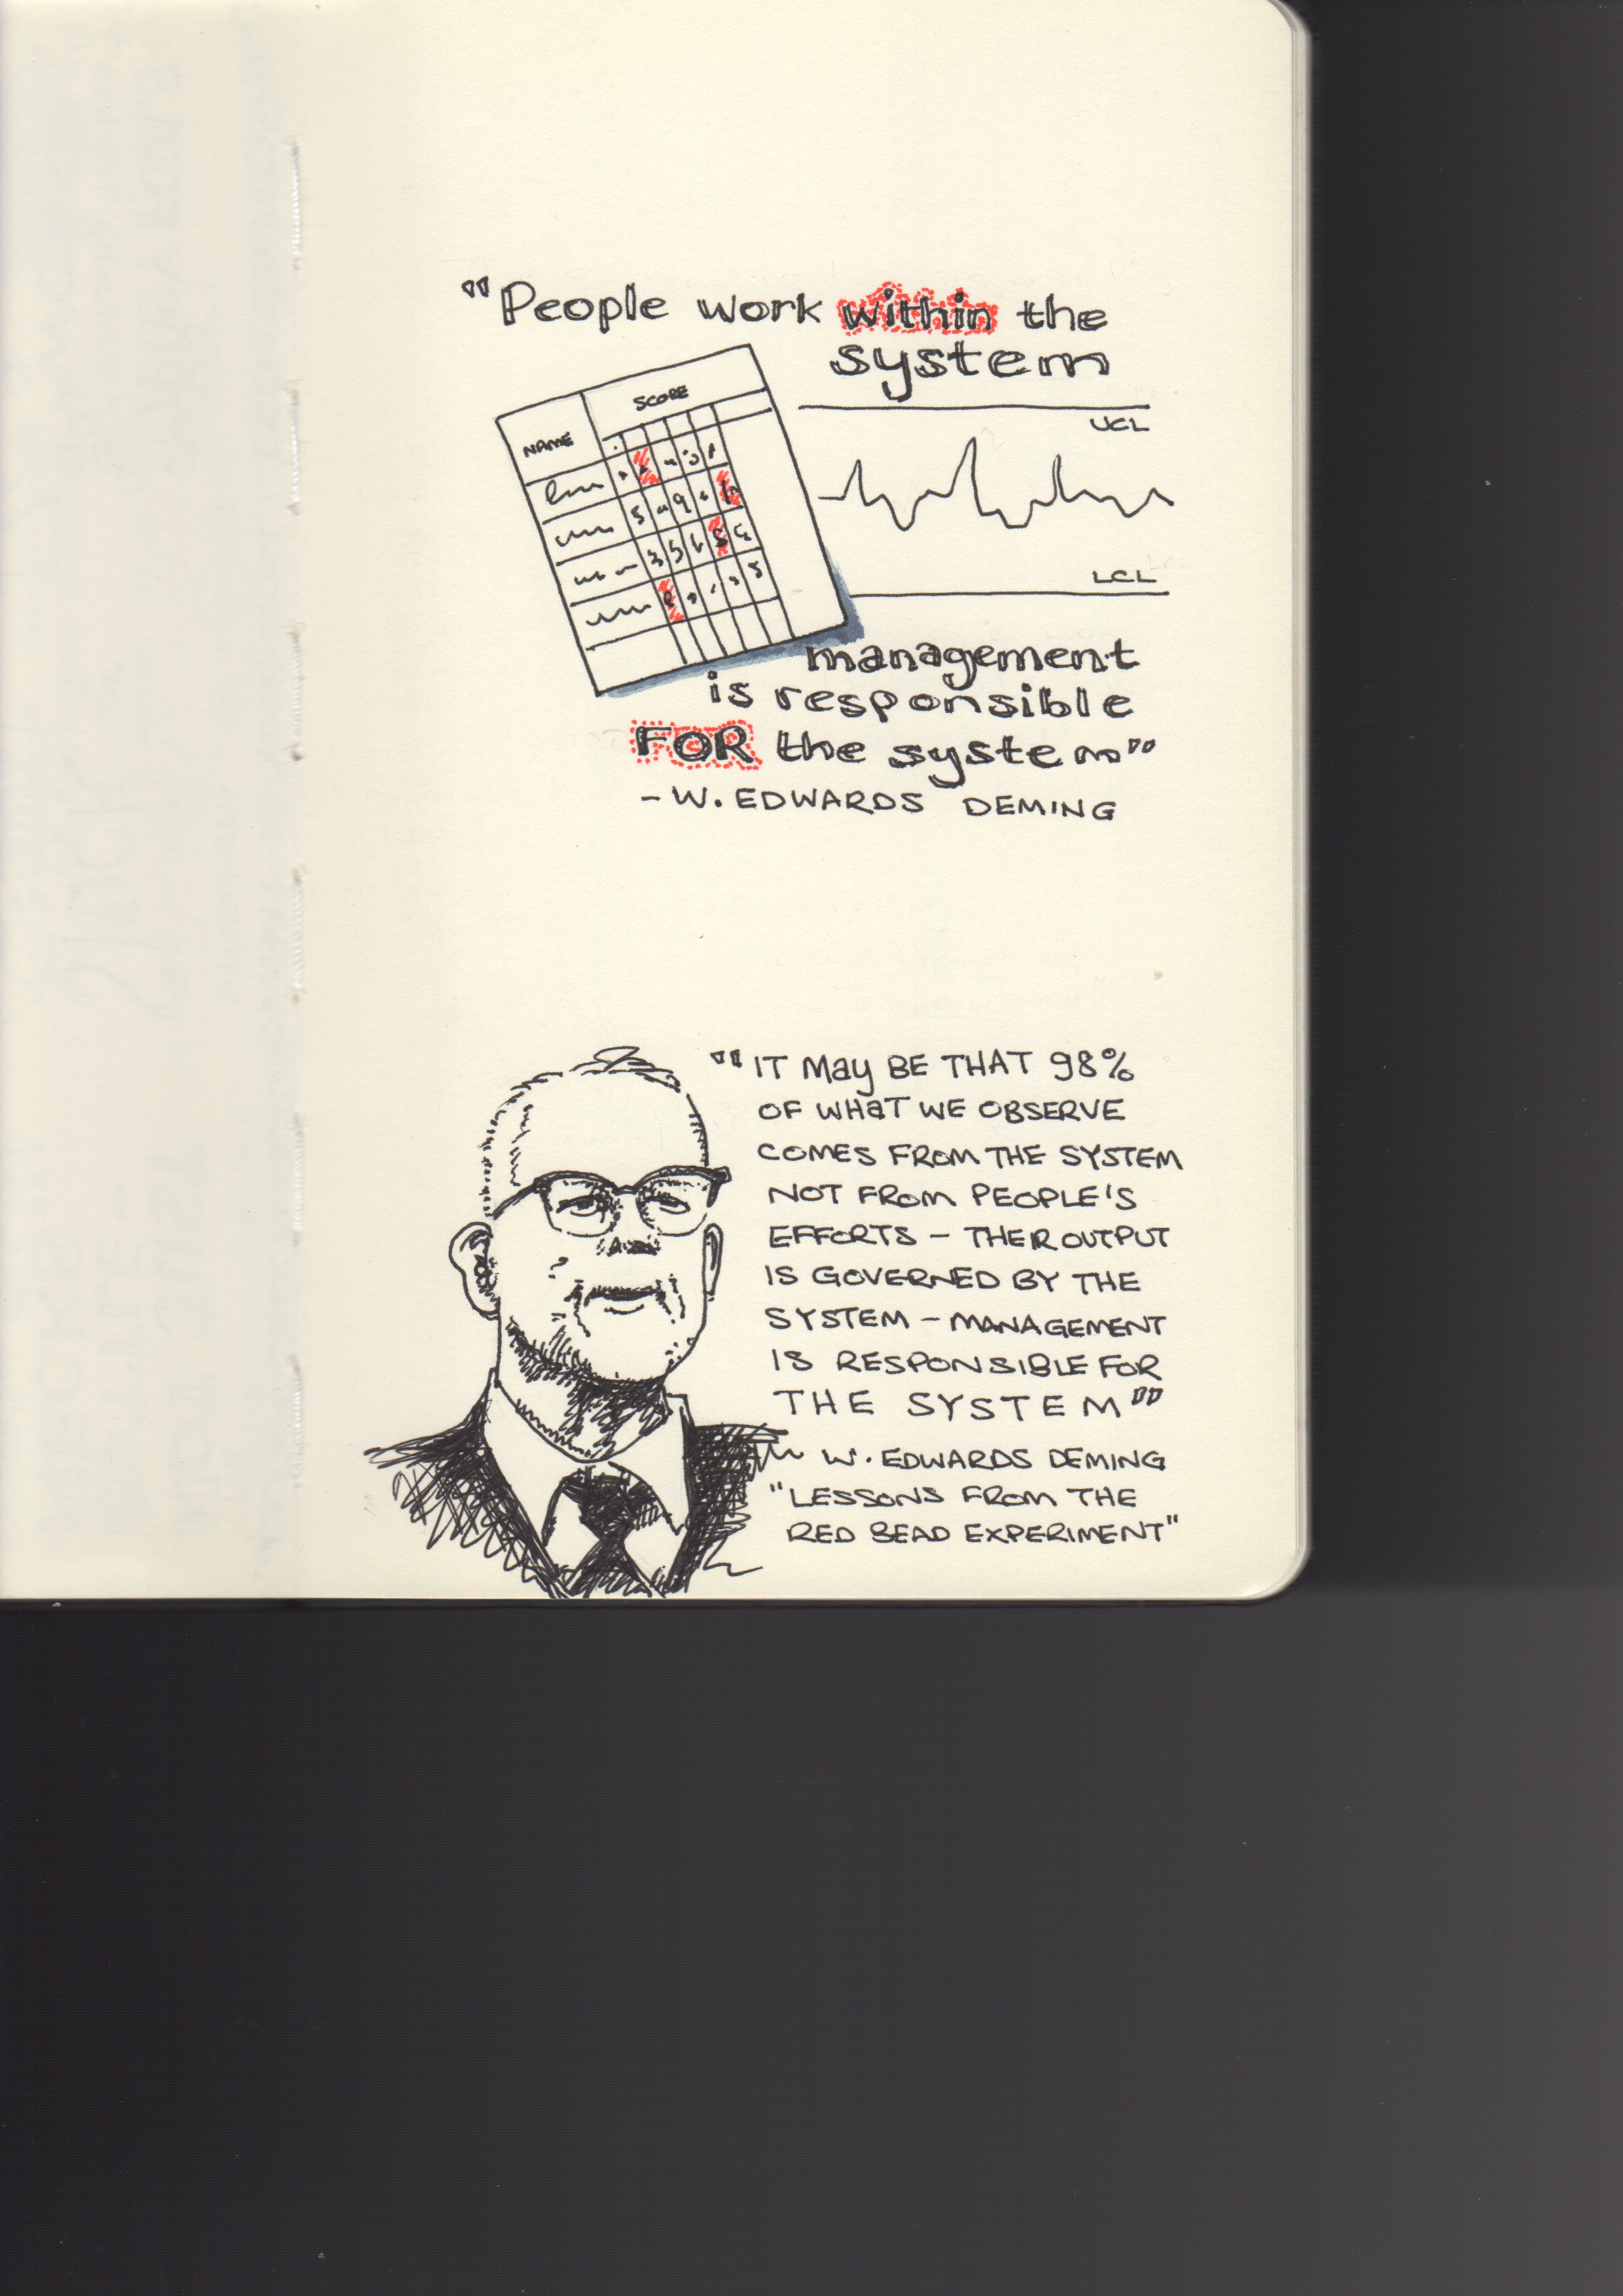 "People work within the
system
SCORE
NAME
UCL
LCL
management
is responsible
FOR the system"
- W. EDWARDS DEMING
"IT MAY BE THAT 98%
OF WHAT WE OBSERVE
COMES FROM THE SYSTEM
NOT FROM PEOPLE'S
EFFORTS - THEIR OUTPUT
IS GOVERNED BY THE
SYSTEM - MANAGEMENT
IS RESPONSIBLE FOR
THE SYSTEM"
W. EDWARDS DEMING
"LESSONS FROM THE
RED BEAD EXPERIMENT"